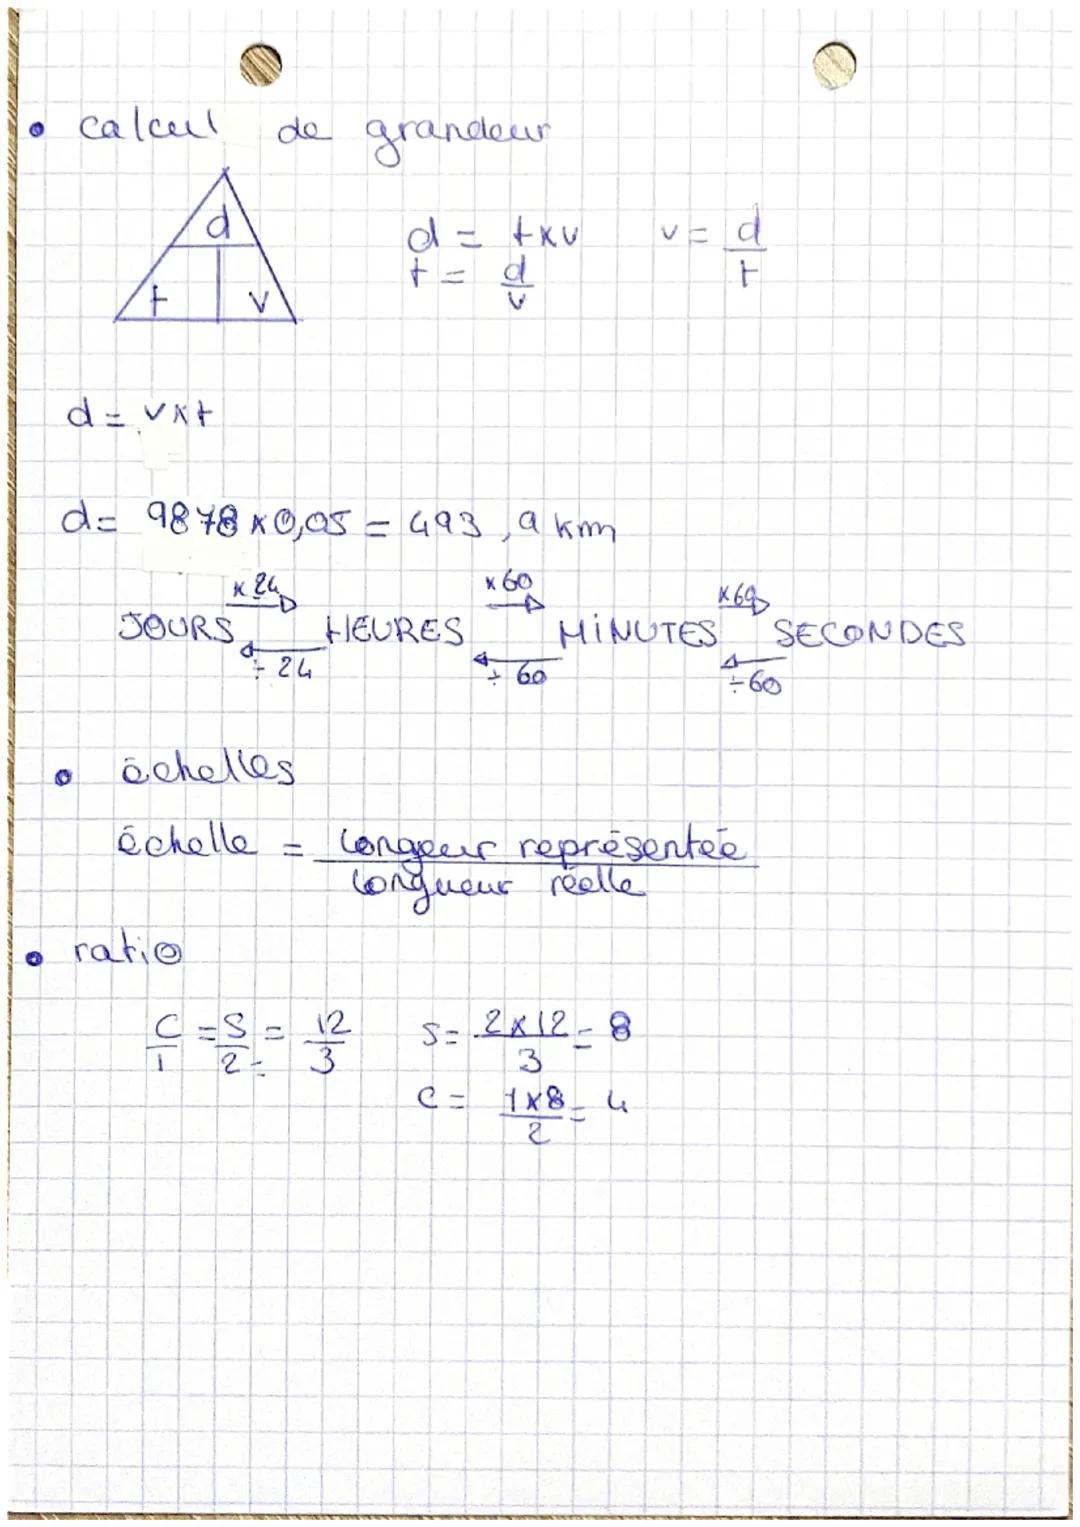 • calcul de grandeur
d
t v
d = t×v v = d/t
t = d/v
d = v×t
d = 9878×0,05 = 493,9 km
×24 ×60 ×60
JOURS HEURES MINUTES SECONDES
÷24 ÷60 ÷60
• échelles
échelle = longeur représentée / longueur réelle
• ratio
C/1 = S/2 = 12/3 S = 2×12/3 = 8
C = 1×8/2 = 4